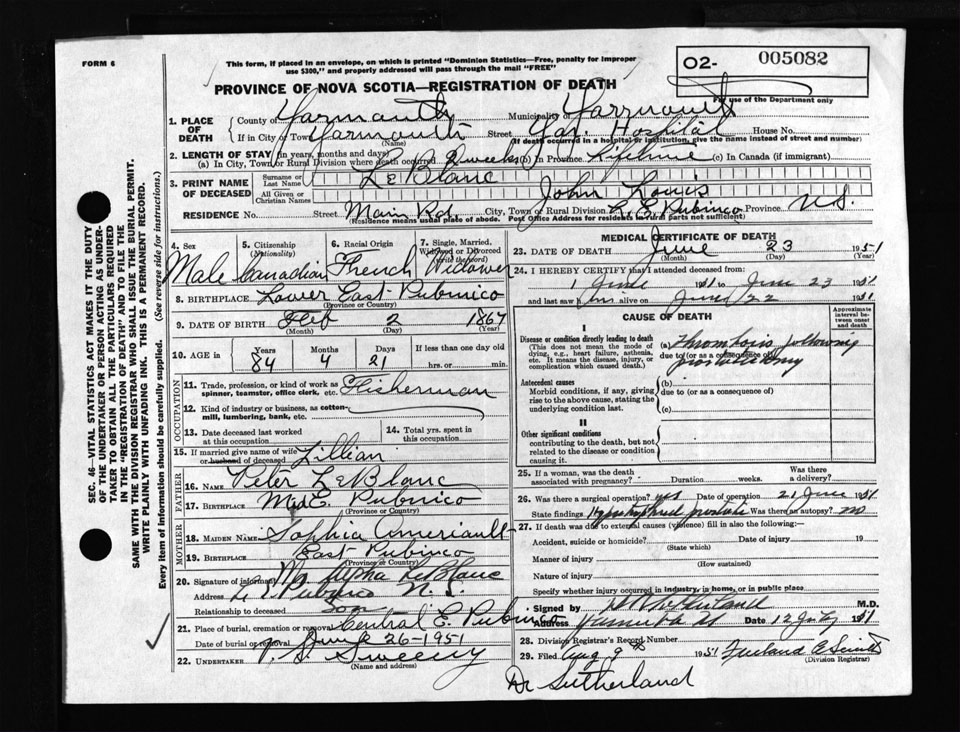 FORM 6
This form, if placed in an envelope, on which is printed "Dominion Statistics—Free, penalty for improper
use $300," and properly addressed will pass through the mail "FREE"
02- 005082
For use of the Department only
PROVINCE OF NOVA SCOTIA—REGISTRATION OF DEATH
1. PLACE OF DEATH County of Yarmouth Municipality of Yarmouth
If in City or Town Yarmouth Street Yar. Hospital House No.
(Name) (If death occurred in a hospital or institution, give the name instead of street and number)
2. LENGTH OF STAY (in years, months and days)
(a) In City, Town or Rural Division where death occurred 2 weeks (b) in Province Lifetime (c) In Canada (if immigrant)
3. PRINT NAME OF DECEASED Surname or Last Name LeBlanc
All Given or Christian Names John Louis
RESIDENCE No. Street Main Rd. City, Town or Rural Division L. E. Pubnico Province N.S.
(Residence means usual place of abode. Post Office Address for Rural parts not sufficient)
4. Sex Male
5. Citizenship (Nationality) Canadian
6. Racial Origin French
7. Single, Married, Widowed or Divorced (Write the word) Widower
8. BIRTHPLACE Lower East Pubnico
(Province or Country)
9. DATE OF BIRTH Feb 2 1867
(Month) (Day) (Year)
10. AGE in Years 84 Months 4 Days 21 If less than one day old
hrs. or min.
OCCUPATION
11. Trade, profession, or kind of work as spinner, teamster, office clerk, etc. Fisherman
12. Kind of industry or business, as cotton-mill, lumbering, bank, etc.
13. Date deceased last worked at this occupation
14. Total yrs. spent in this occupation
15. If married give name of wife or husband of deceased Lillian
FATHER
16. Name Peter LeBlanc
17. Birthplace Mid E. Pubnico
(Province or Country)
MOTHER
18. MAIDEN NAME Sophia Ameriault
19. BIRTHPLACE East Pubnico
(Province or Country)
20. Signature of informant Mr Alpha LeBlanc
Address L E Pubnico N.S.
Relationship to deceased son
21. Place of burial, cremation or removal Central E. Pubnico
Date of burial or removal June 26-1951
22. UNDERTAKER Sweeny
(Name and address)
MEDICAL CERTIFICATE OF DEATH
23. DATE OF DEATH June 23 1951
(Month) (Day)
24. I HEREBY CERTIFY that I attended deceased from:
1 June 1951 to June 23 1951
and last saw him alive on June 22 1951
CAUSE OF DEATH
Approximate interval between onset and death
I
Disease or condition directly leading to death
(This does not mean the mode of dying, e.g., heart failure, asthenia, etc. It means the disease, injury, or complication which caused death.)
(a) Thrombosis following
due to (or as a consequence of)
prostatectomy
Antecedent causes
Morbid conditions, if any, giving rise to the above cause, stating the underlying condition last.
(b)
due to (or as a consequence of)
(c)
II
Other significant conditions
contributing to the death, but not related to the disease or condition causing it.
25. If a woman, was the death associated with pregnancy? Duration weeks. Was there a delivery?
26. Was there a surgical operation? yes Date of operation 21 June 1951
State findings Hypertrophied prostate Was there an autopsy? no
27. If death was due to external causes (violence) fill in also the following:—
Accident, suicide or homicide? Date of injury 19
(State which)
Manner of injury
(How sustained)
Nature of injury
Specify whether injury occurred in industry, in home, or in public place
Signed by M.D.
Address Yarmouth NS Date 12 July 1951
28. Division Registrar's Record Number
29. Filed Aug 9 1951
(Division Registrar)
Dr Sutherland
SEC. 46—VITAL STATISTICS ACT MAKES IT THE DUTY
OF THE UNDERTAKER OR PERSON ACTING AS UNDER-
TAKER TO OBTAIN ALL THE PARTICULARS REQUIRED
IN THE "REGISTRATION OF DEATH" AND TO FILE THE
SAME WITH THE DIVISION REGISTRAR WHO SHALL ISSUE THE BURIAL PERMIT.
WRITE PLAINLY WITH UNFADING INK. THIS IS A PERMANENT RECORD.
Every item of information should be carefully supplied. (See reverse for instructions.)